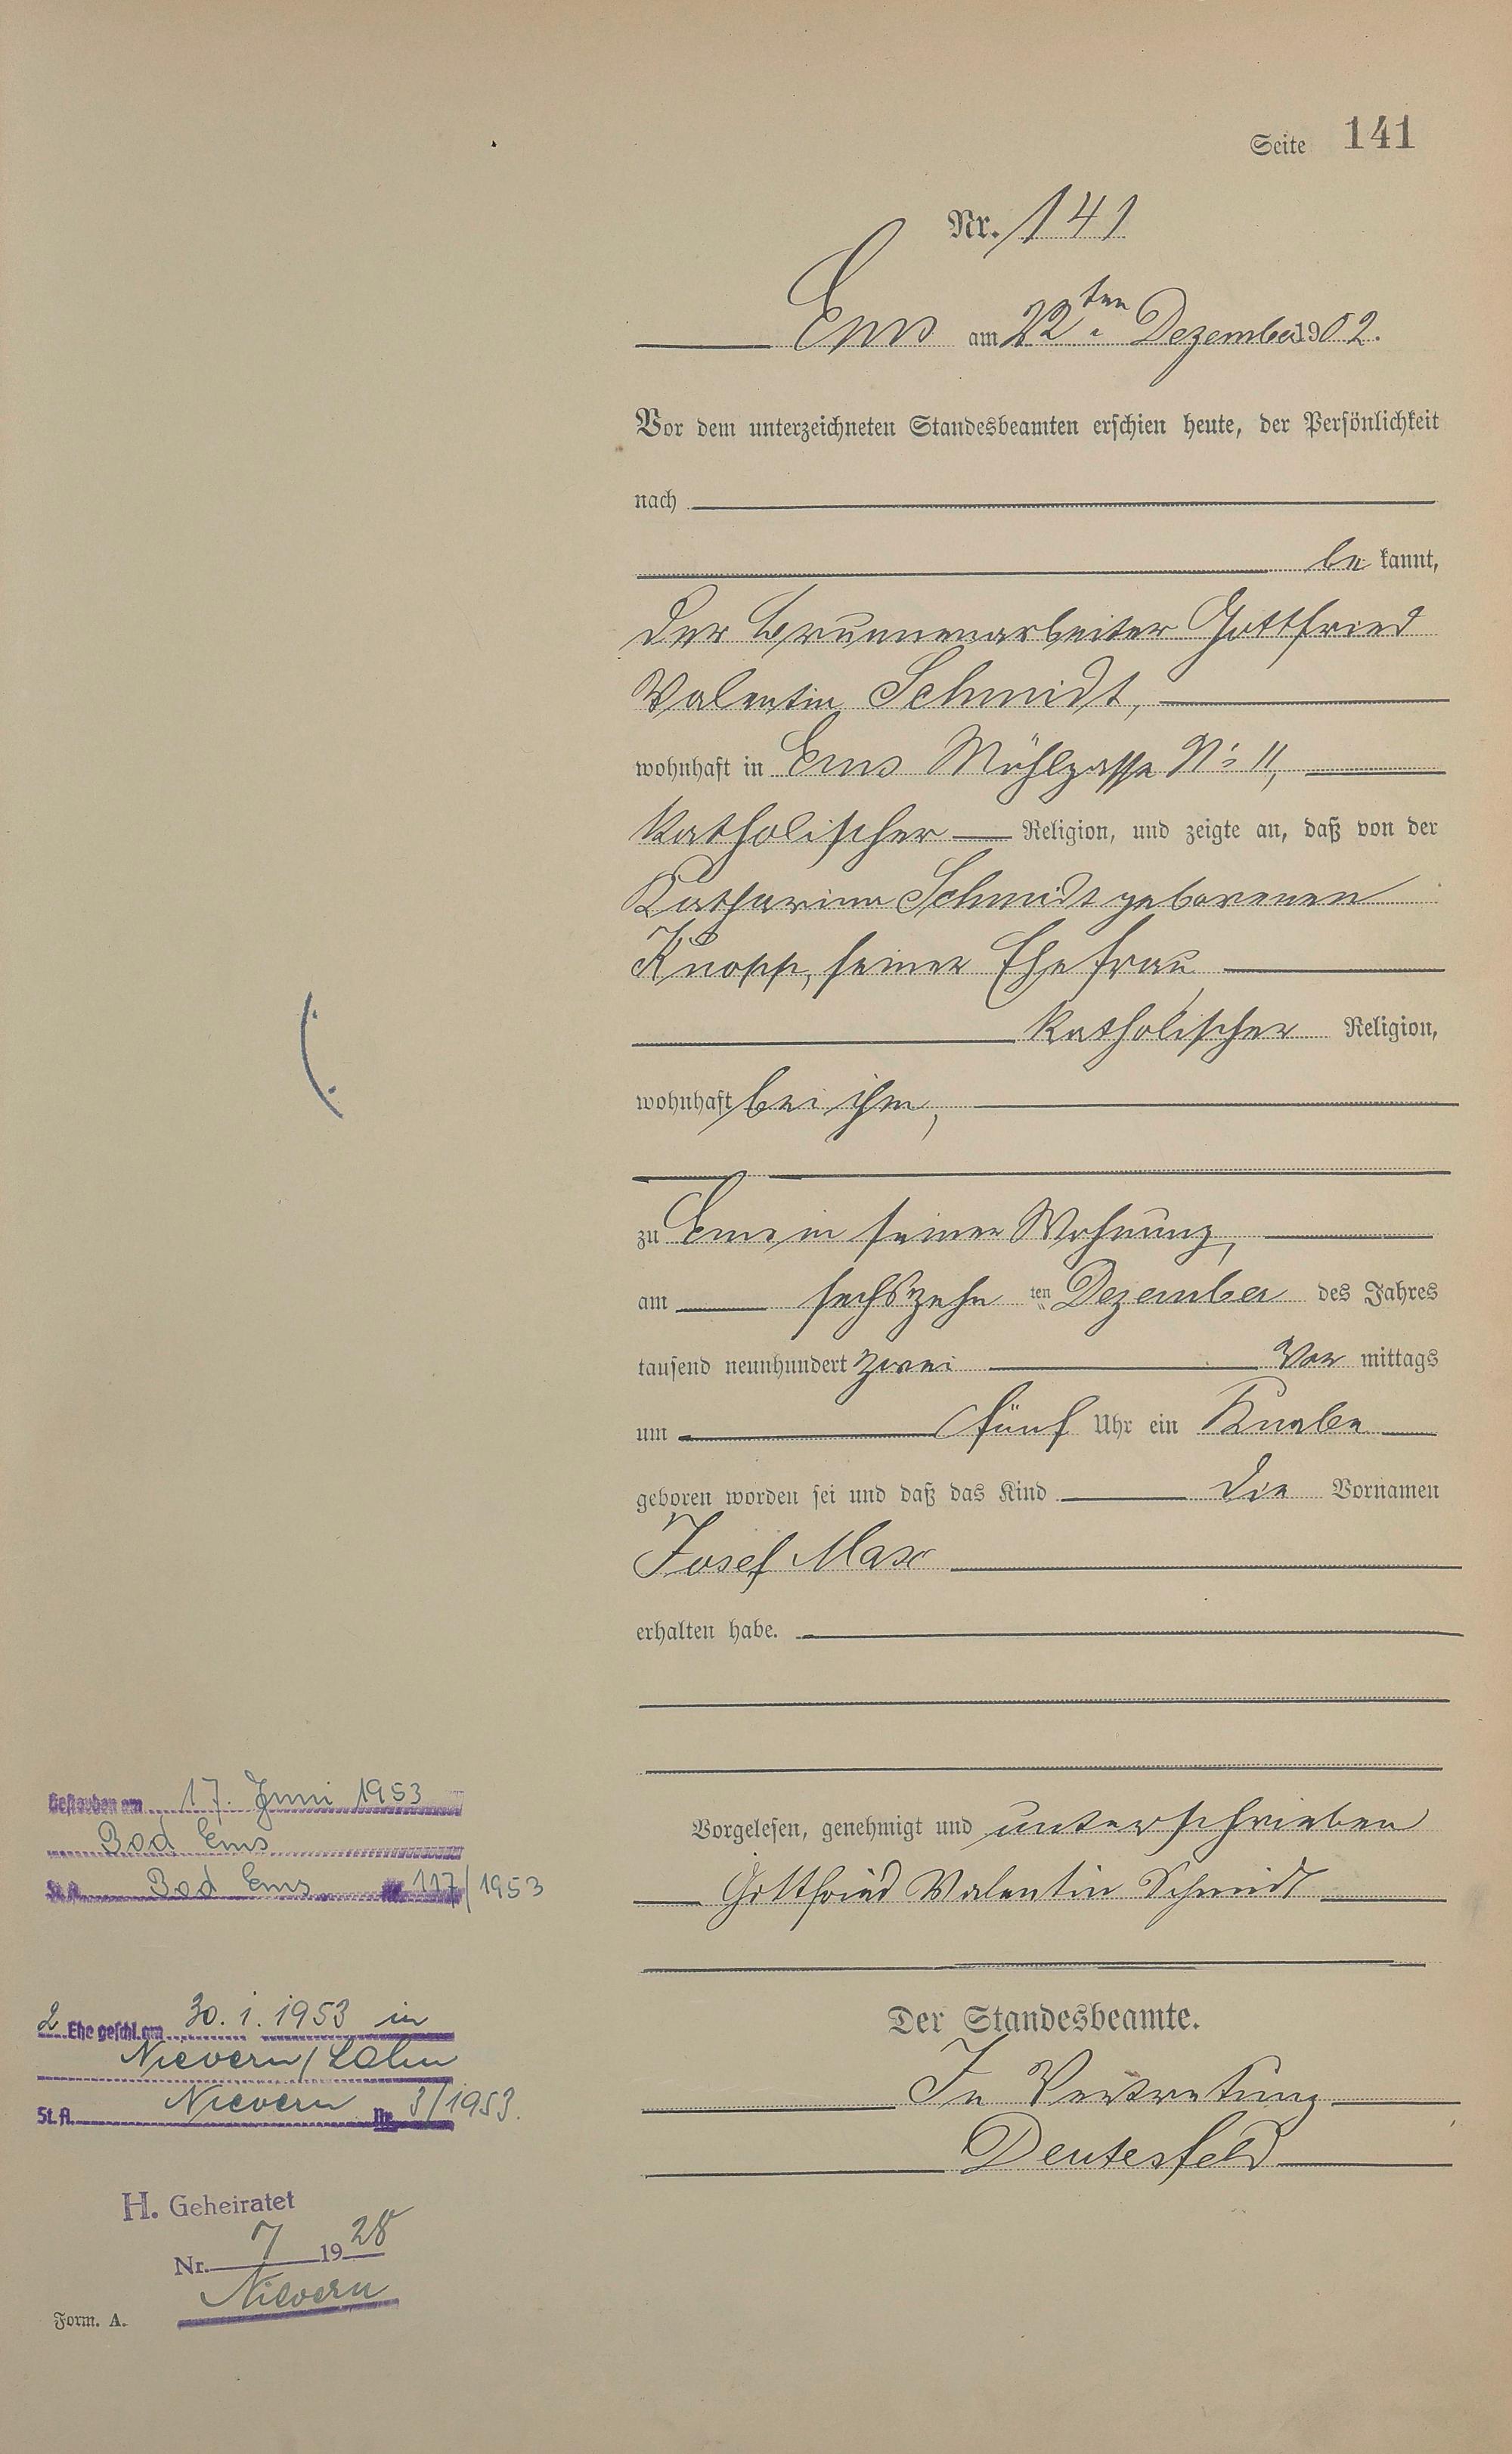 Seite 141
Nr. 141
Ems am 22ten Dezember 1902.
Vor dem unterzeichneten Standesbeamten erschien heute, der Persönlichkeit
nach
be kannt,
der Brunnenarbeiter Gottfried
Valentin Schmidt,
wohnhaft in Ems Mühlgasse No 11,
katholischer Religion, und zeigte an, daß von der
Katharina Schmidt geborenen
Knopp, seiner Ehefrau
katholischer Religion,
wohnhaft bei ihm,
zu Ems in seiner Wohnung,
am sechszehn ten Dezember des Jahres
tausend neunhundert zwei Vor mittags
um fünf Uhr ein Knabe
geboren worden sei und daß das Kind die Vornamen
Josef Max
erhalten habe.
Vorgelesen, genehmigt und unterschrieben
Gottfried Valentin Schmidt
Der Standesbeamte.
In Vertretung
Deutesfeld
Gestorben am 17. Juni 1953
Bad Ems
St.A. Bad Ems Nr. 117/1953
2. Ehe geschl. am 30.1.1953 in
Nievern/Lahn
St.A. Nievern Nr. 3/1953.
H. Geheiratet
Nr. 7 1928
Nievern
Form. A.